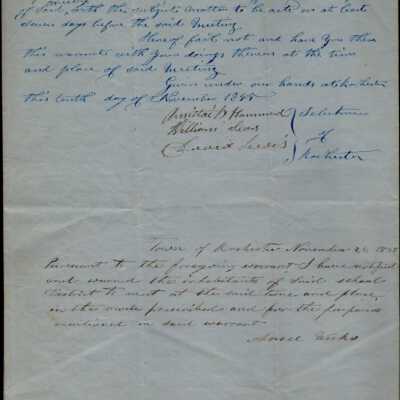 of said with the subjects matter to be acted on at least
seven days before the said meeting
hereof fail not and have you there
this warrant with your doings thereon at the time
and place of said meeting
Given under our hands at Rochester
this tenth day of November 1848
Hammond
William Sears
David Lewis
Selectmen
of
Rochester
Town of Rochester November 20
Pursuant to the foregoing warrant I have notified
and warned the inhabitants of said school
District to meet at the said time and place,
in the mode prescribed and for the purposes
mentioned in said warrant
Ansel Weeks